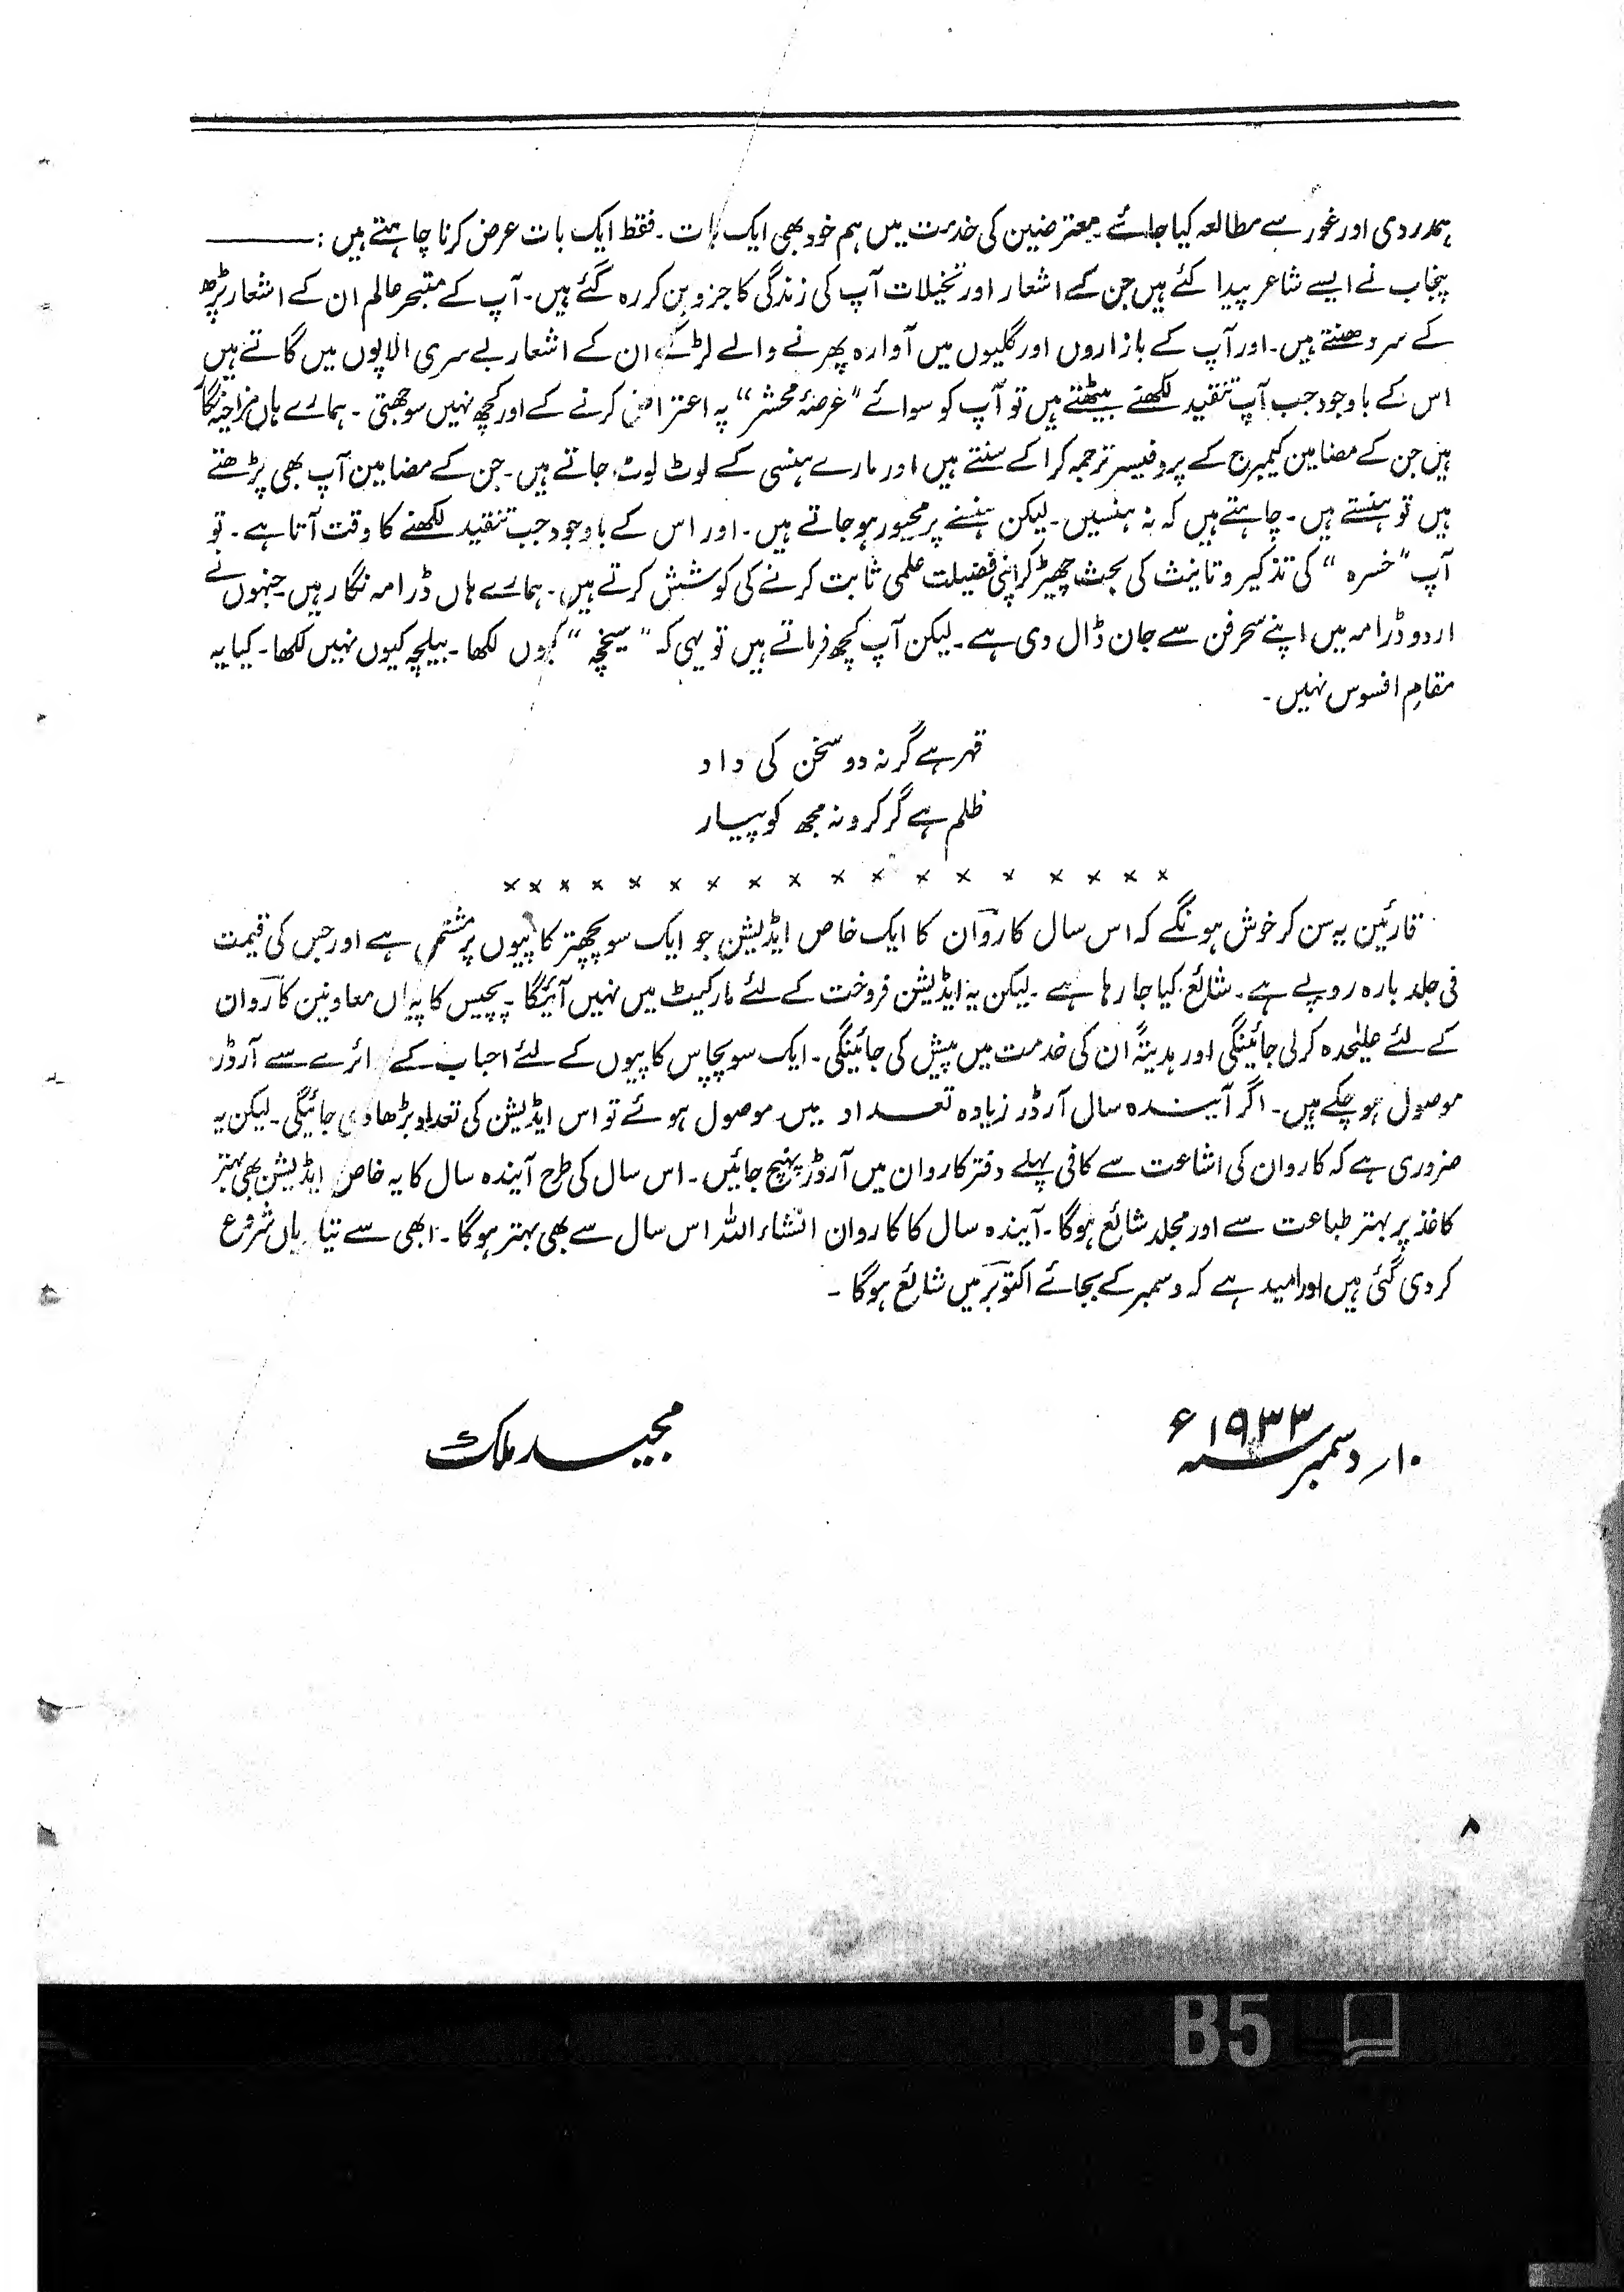 ہمدردی اور غور سے مطالعہ کیا جائے۔ معترضین کی خدمت میں ہم خود بھی ایک بات۔ فقط ایک بات عرض کرنا چاہتے ہیں :———
پنجاب نے ایسے شاعر پیدا کئے ہیں جن کے اشعار اور تخیلات آپ کی زندگی کا جزو بن کر رہ گئے ہیں۔ آپ کے متبحر عالم ان کے اشعار پڑھ
کے سر دھنتے ہیں۔ اور آپ کے بازاروں اور گلیوں میں آوارہ پھرنے والے لڑکے ان کے اشعار بے سری الاپوں میں گاتے ہیں
اس کے باوجود جب آپ تنقید لکھنے بیٹھتے ہیں تو آپ کو سوائے "عرصۂ محشر" پہ اعتراض کرنے کے اور کچھ نہیں سوجھتی۔ ہمارے ہاں مزاحیہ نگار
ہیں جن کے مضامین کیمبرج کے پروفیسر ترجمہ کرا کے سنتے ہیں اور مارے ہنسی کے لوٹ لوٹ جاتے ہیں۔ جن کے مضامین آپ بھی پڑھتے
ہیں تو ہنستے ہیں۔ چاہتے ہیں کہ نہ ہنسیں۔ لیکن ہنسنے پر مجبور ہو جاتے ہیں۔ اور اس کے باوجود جب تنقید لکھنے کا وقت آتا ہے۔ تو
آپ "خسرہ" کی تذکیر و تانیث کی بحث چھیڑ کر اپنی فضیلت علمی ثابت کرنے کی کوشش کرتے ہیں۔ ہمارے ہاں ڈرامہ نگار ہیں۔ جنہوں نے
اردو ڈرامہ میں اپنے سحر فن سے جان ڈال دی ہے۔ لیکن آپ کچھ فرماتے ہیں تو یہی کہ "سیخچہ" کیوں لکھا۔ بیلچہ کیوں نہیں لکھا۔ کیا یہ
مقامِ افسوس نہیں۔
قہر ہے گر نہ دو سخن کی داد
ظلم ہے گر کرو نہ مجھ کو پیار
× × × × × × × × × × × × × × × × × ×
قارئین یہ سن کر خوش ہونگے کہ اس سال کارواں کا ایک خاص ایڈیشن جو ایک سو پچھتر کاپیوں پر مشتمل ہے اور جس کی قیمت
فی جلد بارہ روپے ہے۔ شائع کیا جا رہا ہے۔ لیکن یہ ایڈیشن فروخت کے لئے مارکیٹ میں نہیں آئیگا۔ پچیس کاپیاں معاونین کارواں
کے لئے علیٰحدہ کر لی جائینگی اور ہدیتہً ان کی خدمت میں پیش کی جائینگی۔ ایک سو پچاس کاپیوں کے لئے احباب کے دائرے سے آرڈر
موصول ہو چکے ہیں۔ اگر آیندہ سال آرڈر زیادہ تعداد میں موصول ہوئے تو اس ایڈیشن کی تعداد بڑھا دی جائیگی۔ لیکن یہ
ضروری ہے کہ کارواں کی اشاعت سے کافی پہلے دفتر کارواں میں آرڈر پہنچ جائیں۔ اس سال کی طرح آیندہ سال کا یہ خاص ایڈیشن بھی بہتر
کاغذ پر بہتر طباعت سے اور مجلد شائع ہوگا۔ آیندہ سال کا کارواں انشاء اللہ اس سال سے بھی بہتر ہوگا۔ ابھی سے تیاریاں شروع
کر دی گئی ہیں اور امید ہے کہ دسمبر کے بجائے اکتوبر میں شائع ہوگا۔
۱۰ر دسمبر سنہ ۱۹۳۳ء
مجید ملک
۸
B5